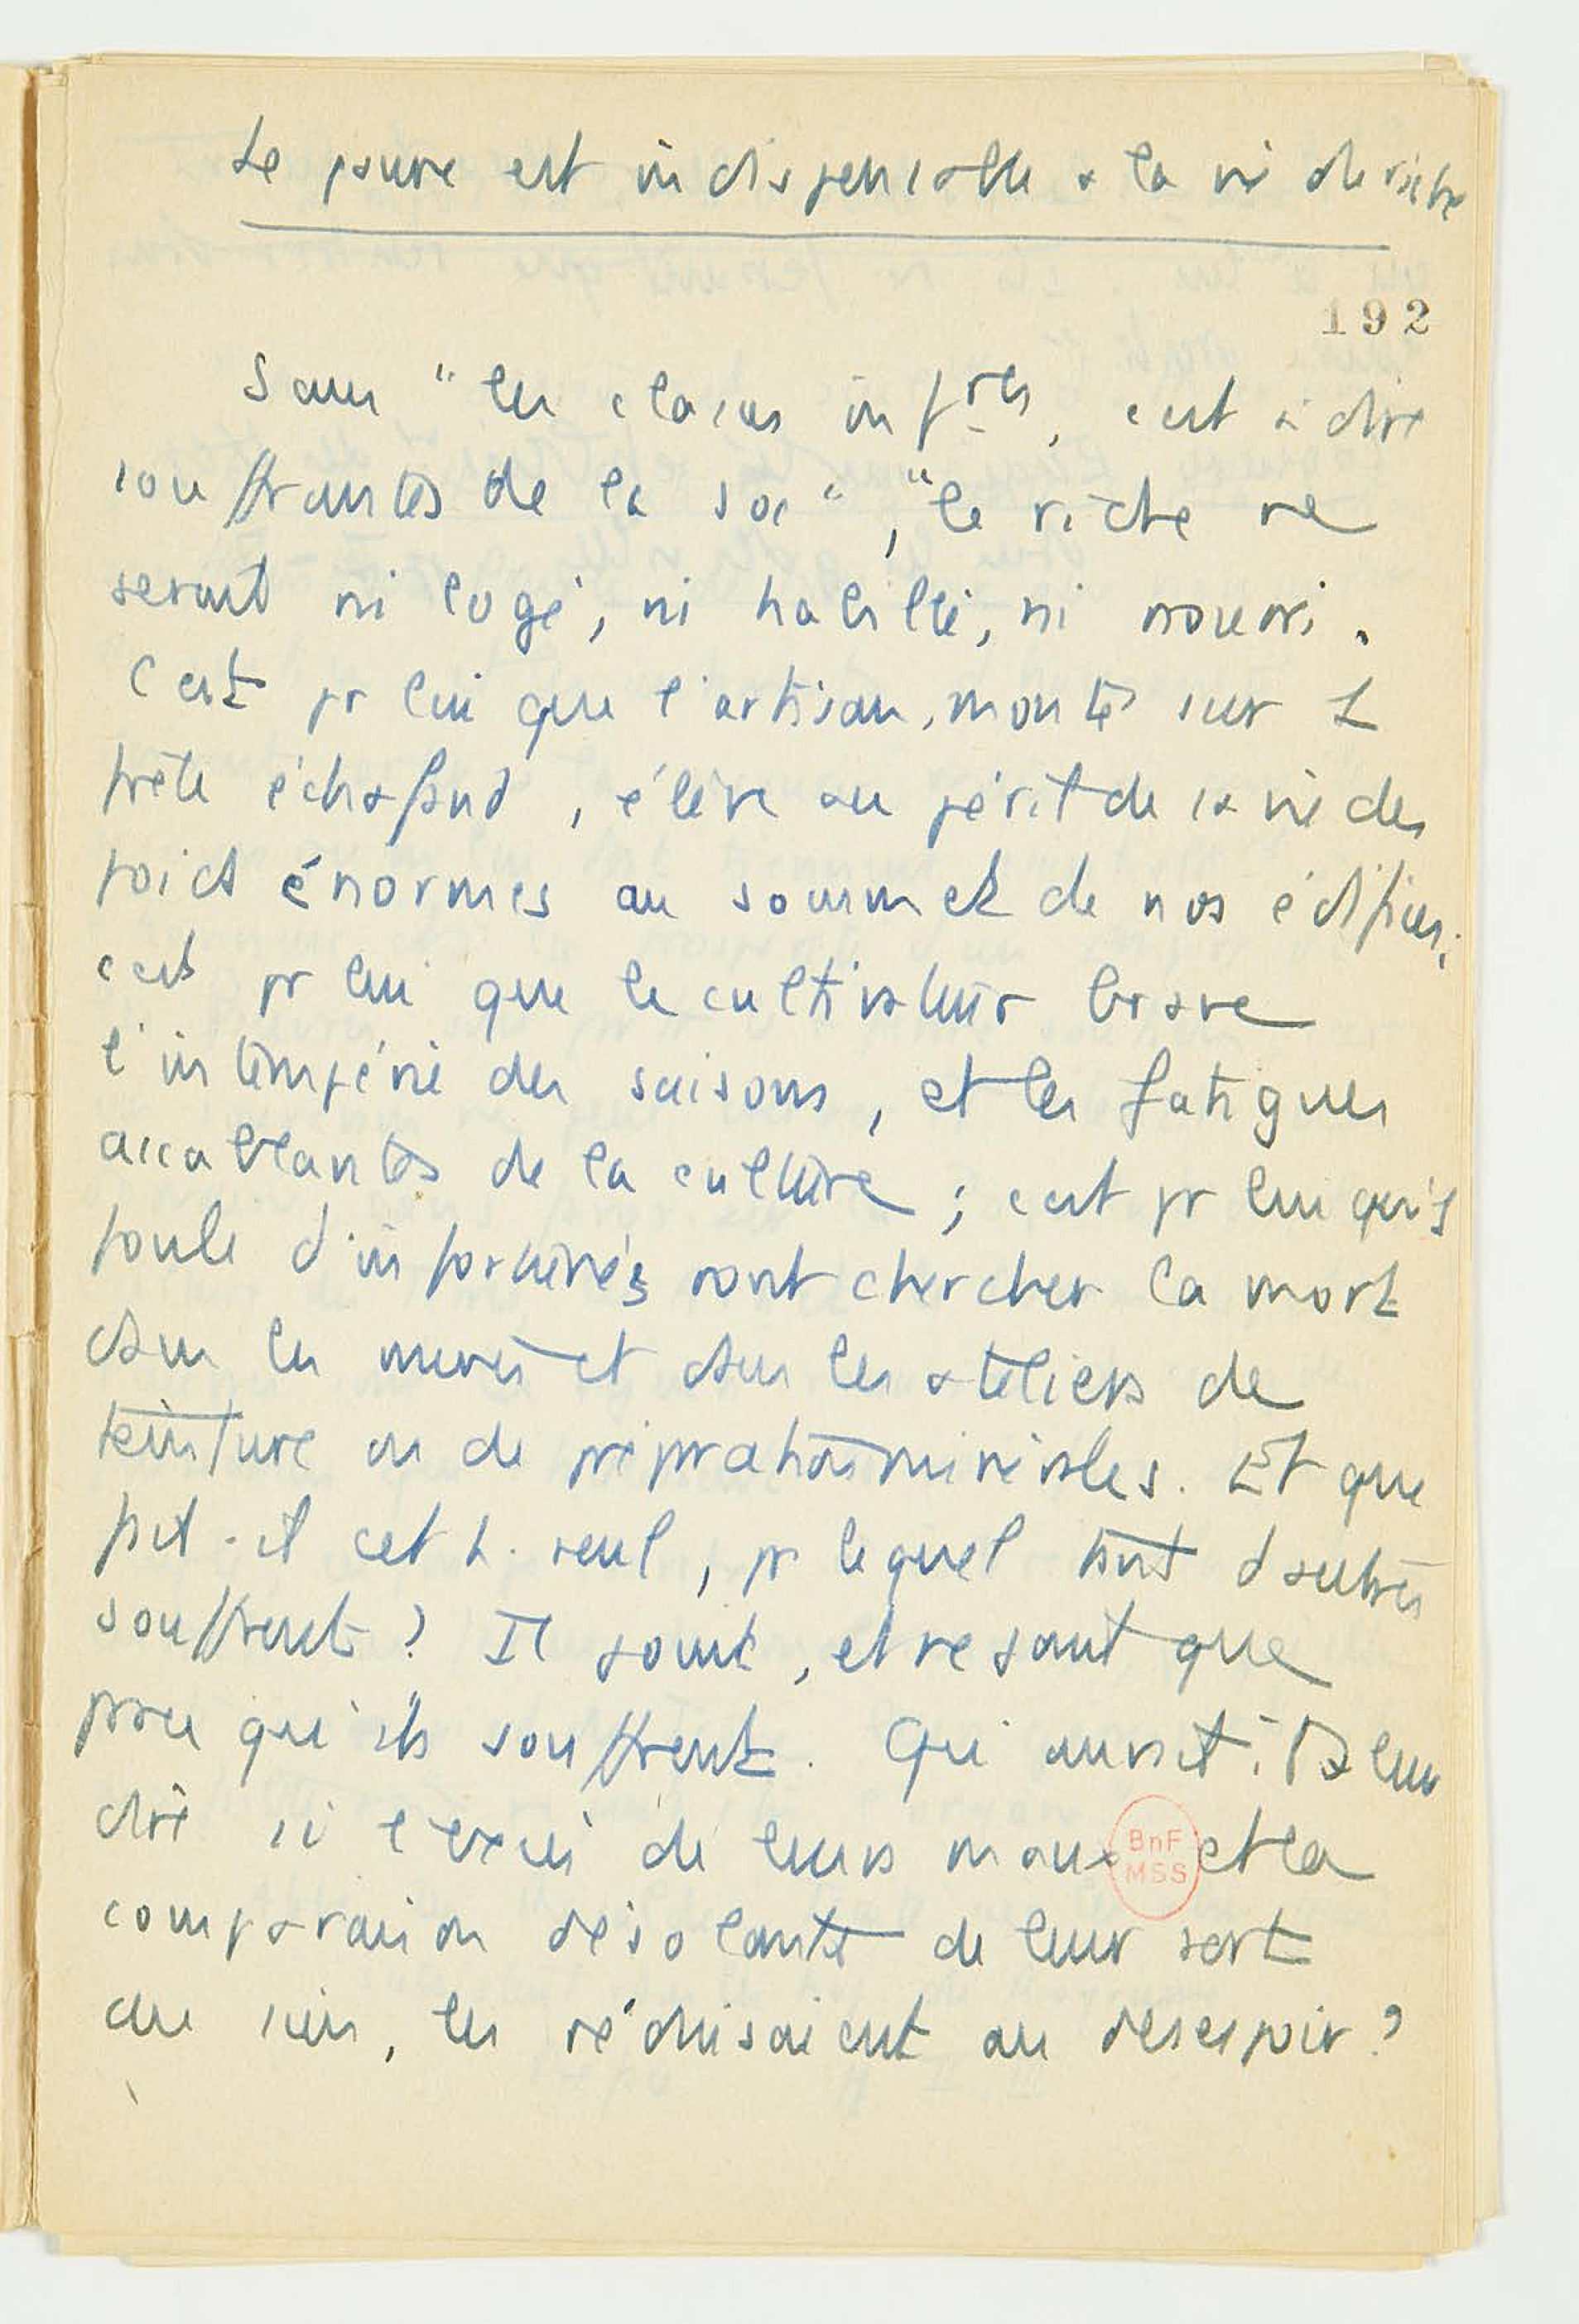 Le pauvre est indispensable a la vie du riche
192
Sans "les classes infres, c'est à dire
souffrantes de la soc", "le riche ne
serait ni logé, ni habillé, ni nourri.
C'est pr lui que l'artisan, monté sur 1
frêle échafaud, élève au péril de sa vie des
poids énormes au sommet de nos édifices;
c'est pr lui que le cultivateur brave
l'intempérie des saisons, et les fatigues
accablantes de la culture; c'est pr lui qu'1
foule d'infortunés vont chercher la mort
dans les mines et dans les ateliers de
teinture ou de préparations minérales. Et que
fait-il cet h. seul, pr lequel tant d'autres
souffrent? Il jouit, et ne jouit que
parce qu'ils souffrent. Qui aurait-il à leur
dire si l'excès de leurs maux et la
BnF
MSS
comparaison désolante de leur sort
au sien, les réduisaient au désespoir?